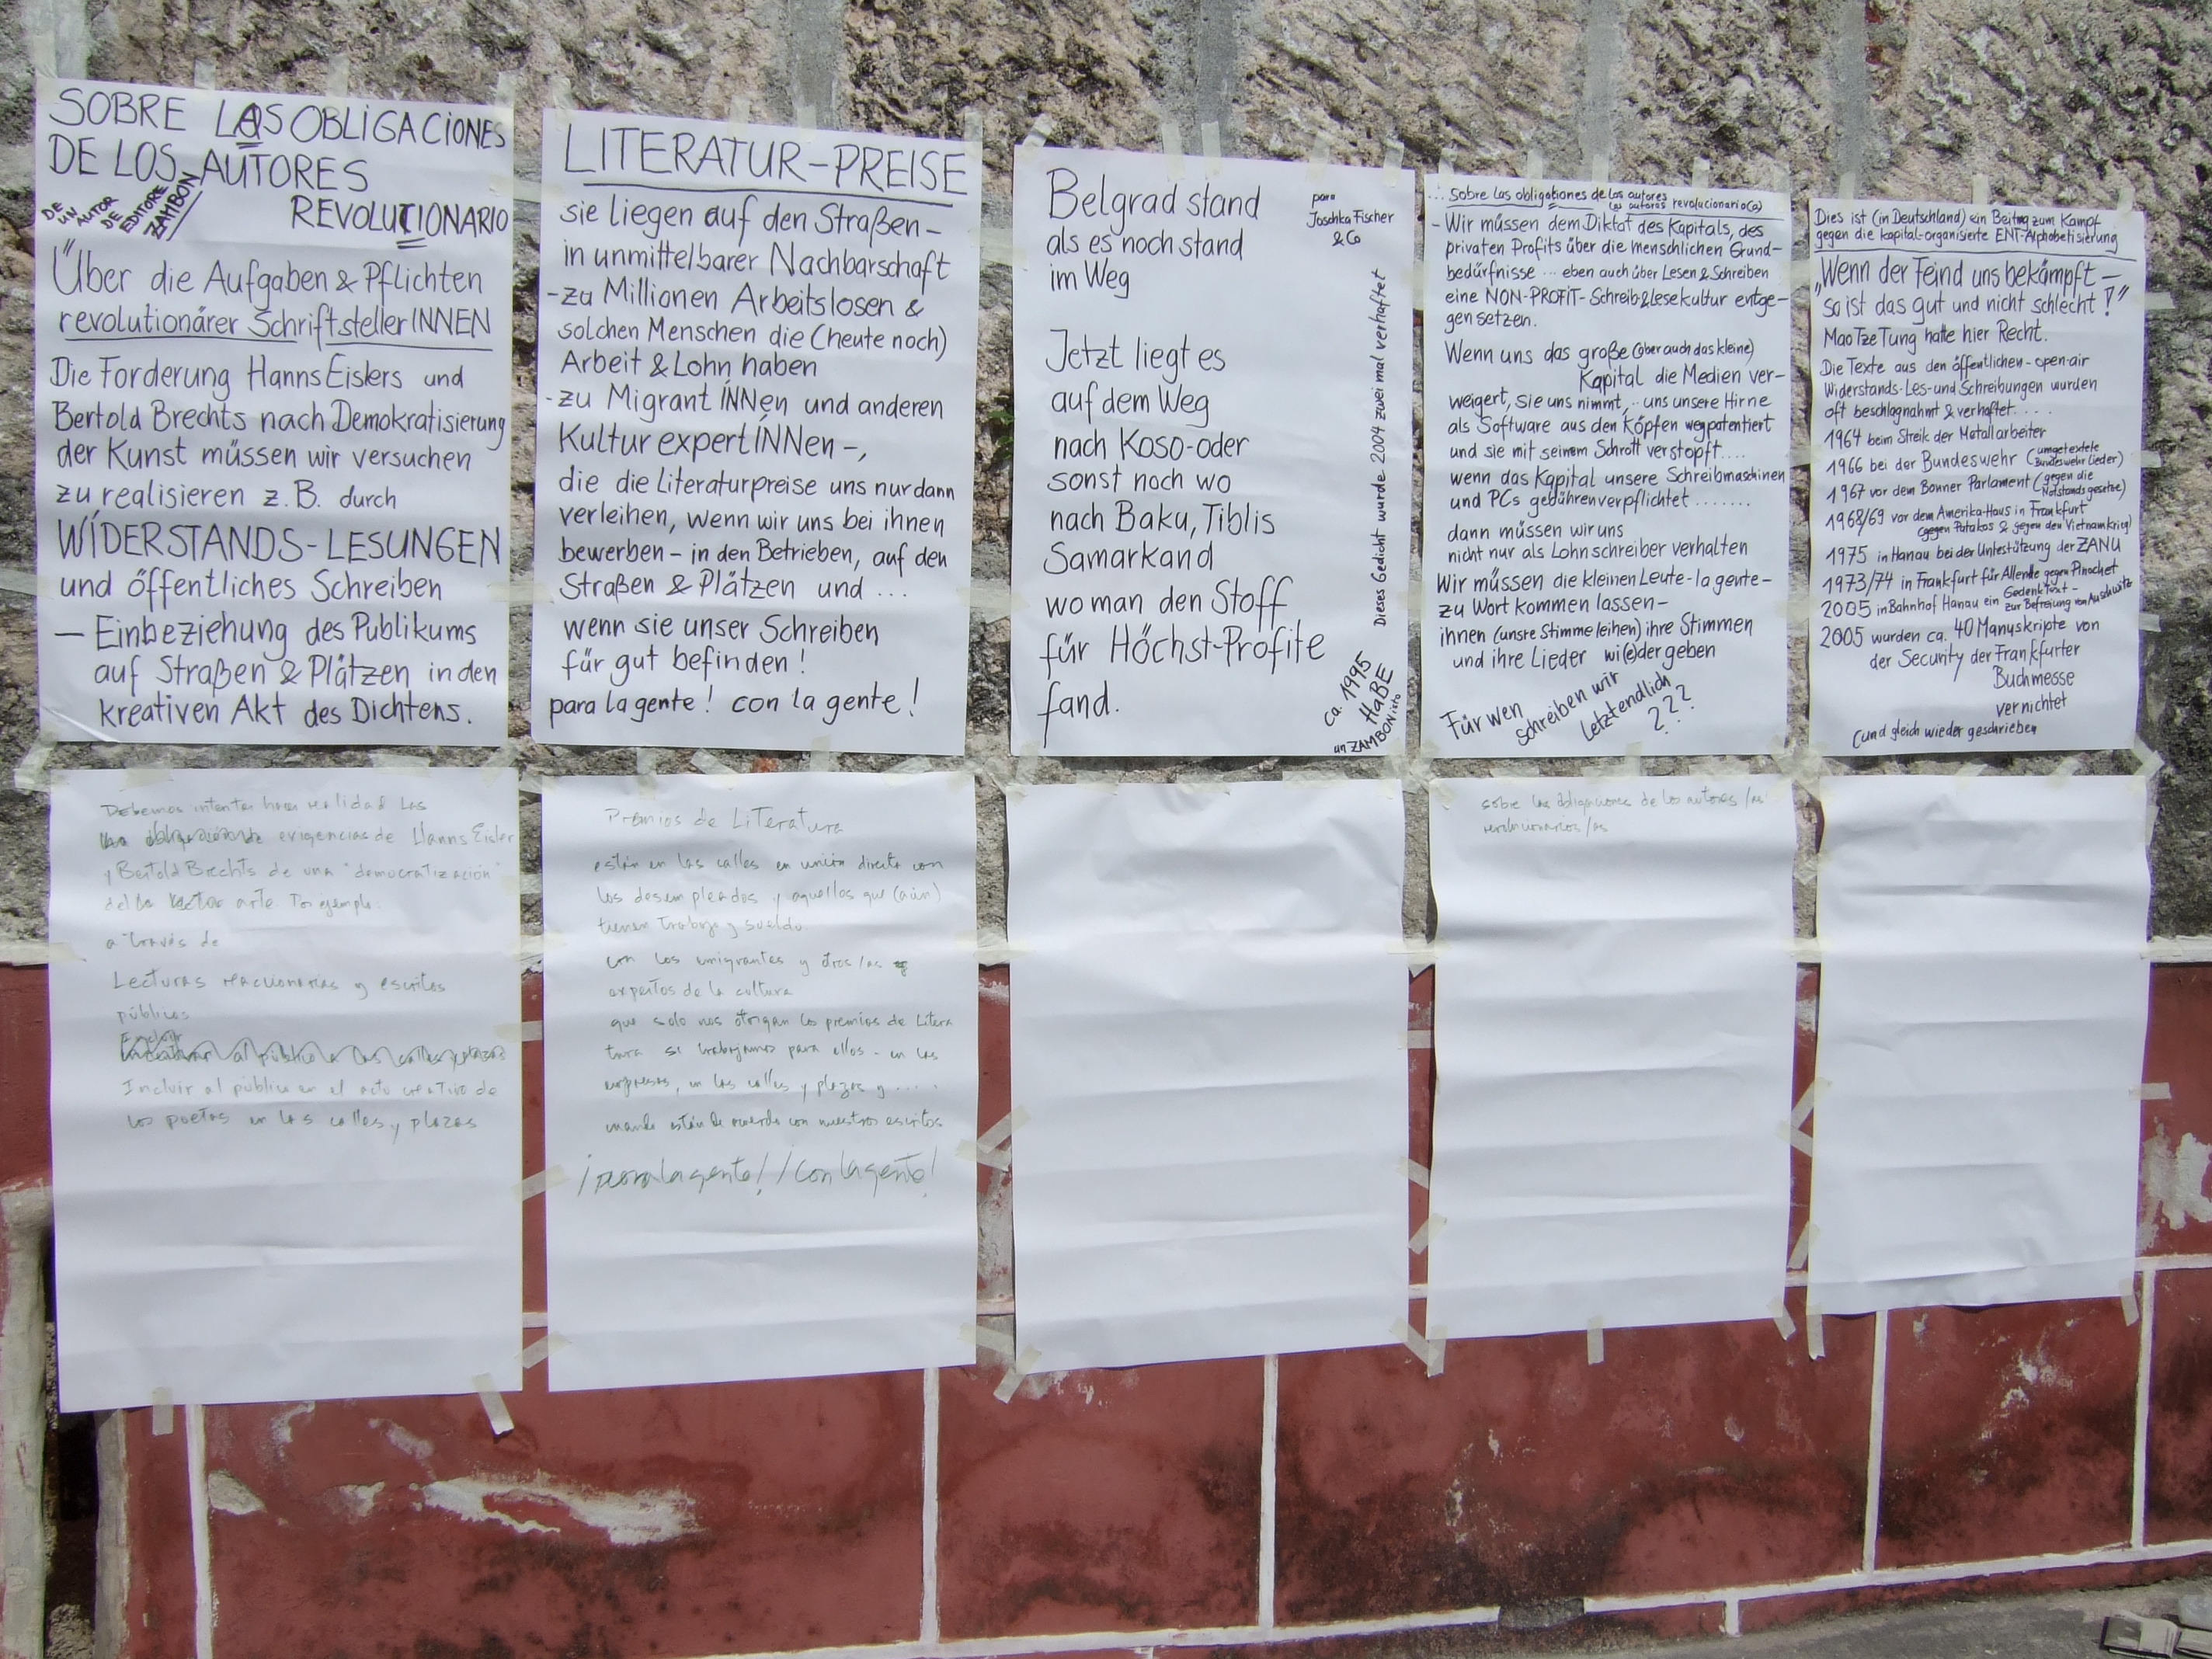 SOBRE LAS OBLIGACIONES
DE LOS AUTORES
REVOLUCIONARIO
DE
UN AUTOR
DE
EDITORE
ZAMBON
Über die Aufgaben & Pflichten
revolutionärer SchriftstellerINNEN
Die Forderung Hanns Eislers und
Bertold Brechts nach Demokratisierung
der Kunst müssen wir versuchen
zu realisieren z.B. durch
WIDERSTANDS-LESUNGEN
und öffentliches Schreiben
— Einbeziehung des Publikums
auf Straßen & Plätzen in den
kreativen Akt des Dichtens.
LITERATUR-PREISE
sie liegen auf den Straßen –
in unmittelbarer Nachbarschaft
- zu Millionen Arbeitslosen &
solchen Menschen die (heute noch)
Arbeit & Lohn haben
- zu MigrantINNen und anderen
KulturexpertINNen –,
die die Literaturpreise uns nur dann
verleihen, wenn wir uns bei ihnen
bewerben – in den Betrieben, auf den
Straßen & Plätzen und ...
wenn sie unser Schreiben
für gut befinden!
para la gente! con la gente!
Belgrad stand
als es noch stand
im Weg
para
Joschka Fischer
& Co
Jetzt liegt es
auf dem Weg
nach Koso-oder
sonst noch wo
nach Baku, Tiblis
Samarkand
wo man den Stoff
für Höchst-Profite
fand.
Dieses Gedicht wurde 2004 zwei mal verhaftet
ca. 1995
HaBE
un ZAMBONisto
... Sobre las obligationes de los autores
las autoras revolucionario(a)
- Wir müssen dem Diktat des Kapitals, des
privaten Profits über die menschlichen Grund-
bedürfnisse ... eben auch über Lesen & Schreiben
eine NON-PROFIT-Schreib&Lesekultur entge-
gen setzen.
Wenn uns das große (aber auch das kleine)
Kapital die Medien ver-
weigert, sie uns nimmt, .. uns unsere Hirne
als Software aus den Köpfen wegpatentiert
und sie mit seinem Schrott verstopft ....
wenn das Kapital unsere Schreibmaschinen
und PCs gebührenverpflichtet .......
dann müssen wir uns
nicht nur als Lohnschreiber verhalten
Wir müssen die kleinen Leute - la gente -
zu Wort kommen lassen -
ihnen (unsre Stimme leihen) ihre Stimmen
und ihre Lieder wi(e)dergeben
Für wen
schreiben wir
Letztendlich
???
Dies ist (in Deutschland) ein Beitrag zum Kampf
gegen die kapital-organisierte ENT-Alphabetisierung
„Wenn der Feind uns bekämpft –
so ist das gut und nicht schlecht!"
Mao Tze Tung hatte hier Recht.
Die Texte aus den öffentlichen - open-air
Widerstands-Les- und Schreibungen wurden
oft beschlagnahmt & verhaftet ....
1964 beim Streik der Metallarbeiter
1966 bei der Bundeswehr (umgetextete
Bundeswehr Lieder)
1967 vor dem Bonner Parlament (gegen die
Notstandsgesetze)
1968/69 vor dem Amerika-Haus in Frankfurt
(gegen Patakos & gegen den Vietnamkrieg)
1975 in Hanau bei der Unterstützung der ZANU
1973/74 in Frankfurt für Allende gegen Pinochet
2005 in Bahnhof Hanau ein Gedenktext -
zur Befreiung von Auschwitz
2005 wurden ca. 40 Manuskripte von
der Security der Frankfurter
Buchmesse
vernichtet
(und gleich wieder geschrieben
Debemos intentar hacer realidad las
evigencias de Hanns Eisler
y Bertold Brechts de una "democratización"
del arte. Por ejemplo:
a través de
Lecturas reaccionarias y escritos
públicos
al público a las calles y plazas
Incluir al público en el acto creativo de
los poetas en las calles y plazas
Premios de Literatura
están en las calles en unión directa con
los desempleados y aquellos que (aún)
tienen trabajo y sueldo.
con los emigrantes y otros/as
expertos de la cultura
que solo nos otorgan los premios de Litera
tura si trabajamos para ellos - en las
empresas, en las calles y plazas y .....
cuando están de acuerdo con nuestros escritos
¡para la gente! ¡con la gente!
sobre las obligaciones de los autores/as
revolucionarios/as